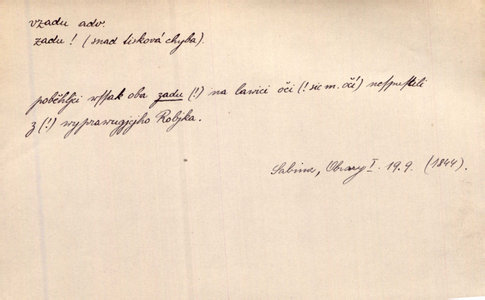 vzadu adv.
zadu! (snad tisková chyba).
poběhljci wssak oba zadu (!) na lawici oči (! sic m. očí) nespustili
z (!) wyprawugjcjho Roljka.
Sabina, Obrazy I. 19.9. (1844).